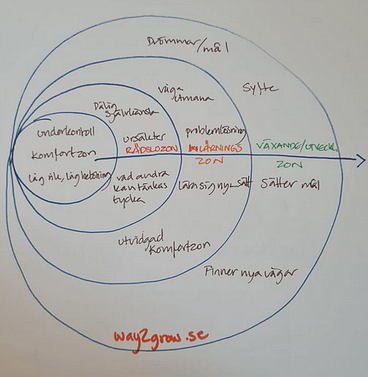 Drömmar/mål
våga
utmana
Syfte
Dålig
självkänsla
under kontroll
ursäkter
problemlösning
komfortzon
RÄDSLOZON
INLÄRNINGS
ZON
VÄXANDE/UTVECKL.
ZON
låg risk, låg belöning
vad andra
kan tänkas
tycka
Lära sig nya sätt
Sätter mål
utvidgad
komfortzon
Finner nya vägar
way2grow.se